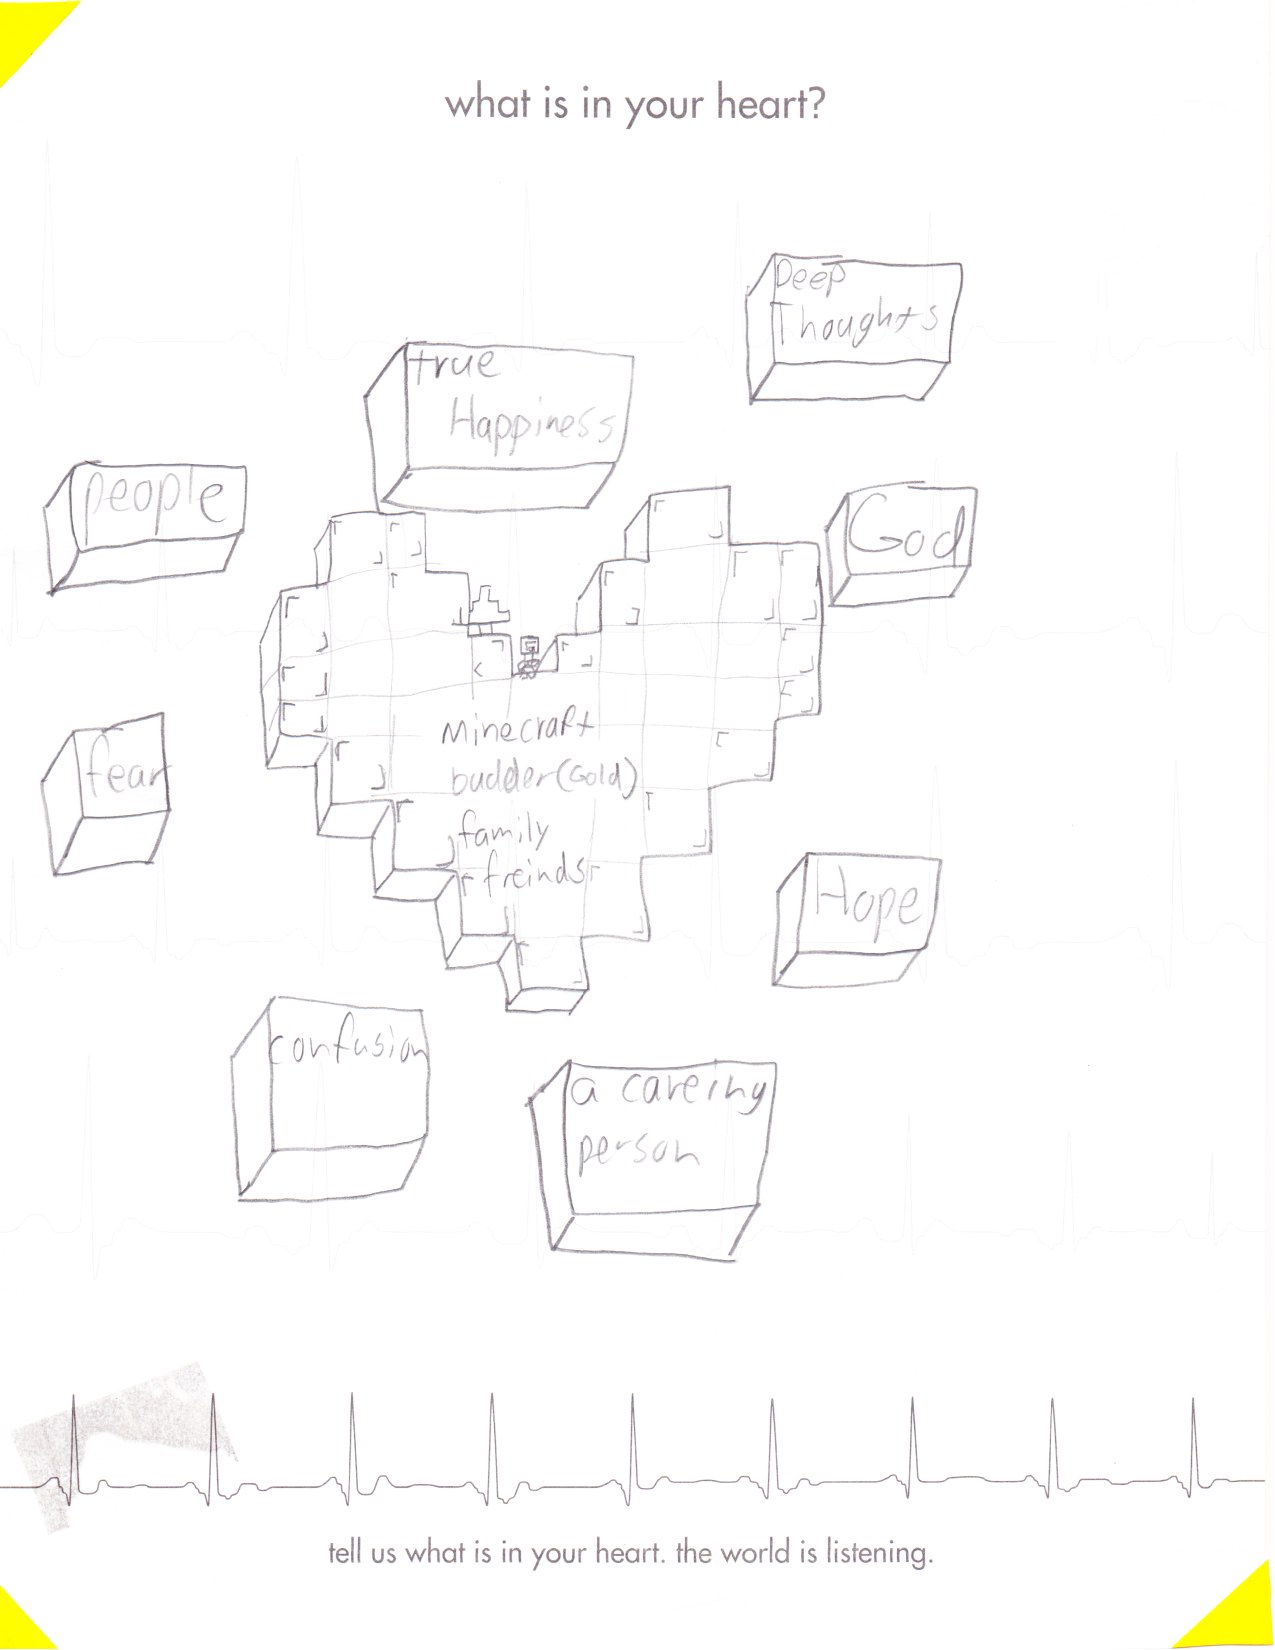 what is in your heart?
Deep
Thoughts
true
Happiness
people
God
fear
Minecraft
budder(Gold)
family
freinds
Hope
confusion
a careing
person
tell us what is in your heart. the world is listening.